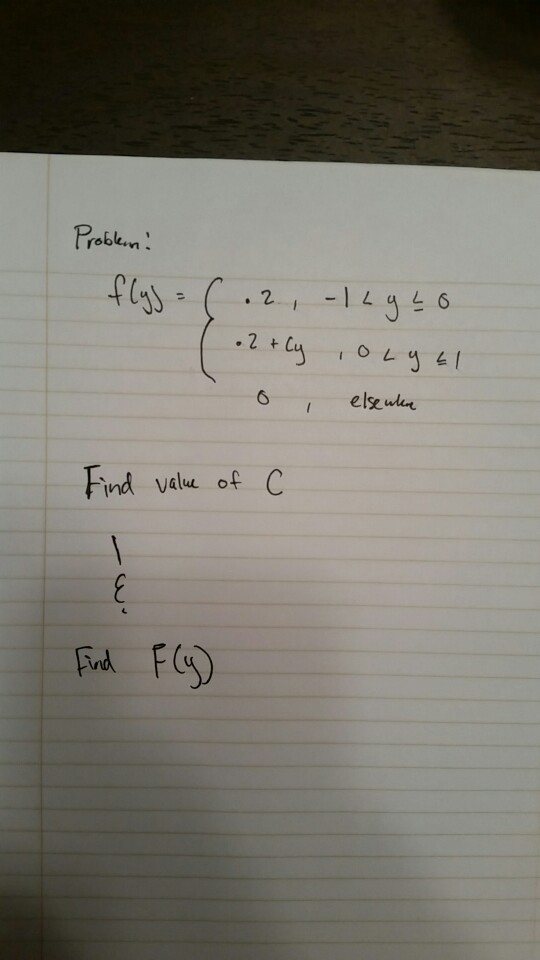 Problem:
f(y) = { .2 , -1 < y ≤ 0
.2 + Cy , 0 < y ≤ 1
0 , elsewhere
Find value of C
&
Find F(y)